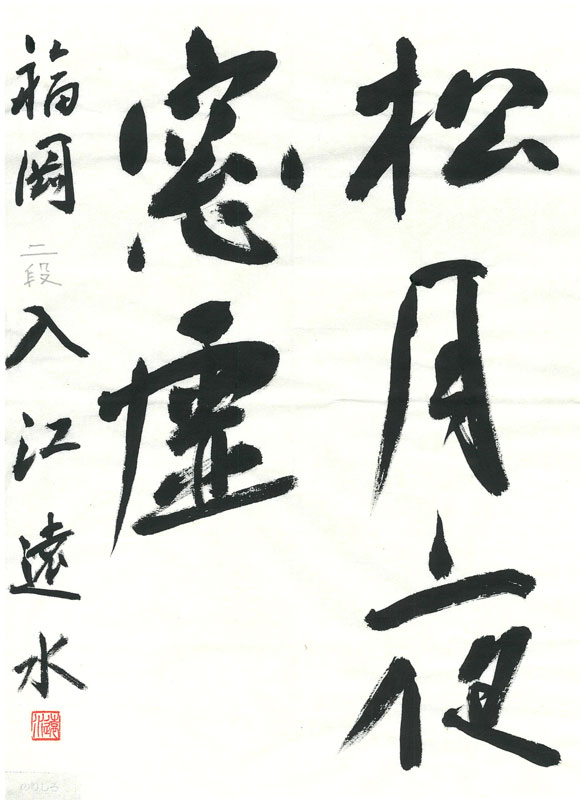 松月夜
窓虚
福岡 二段 入江遠水
遠水